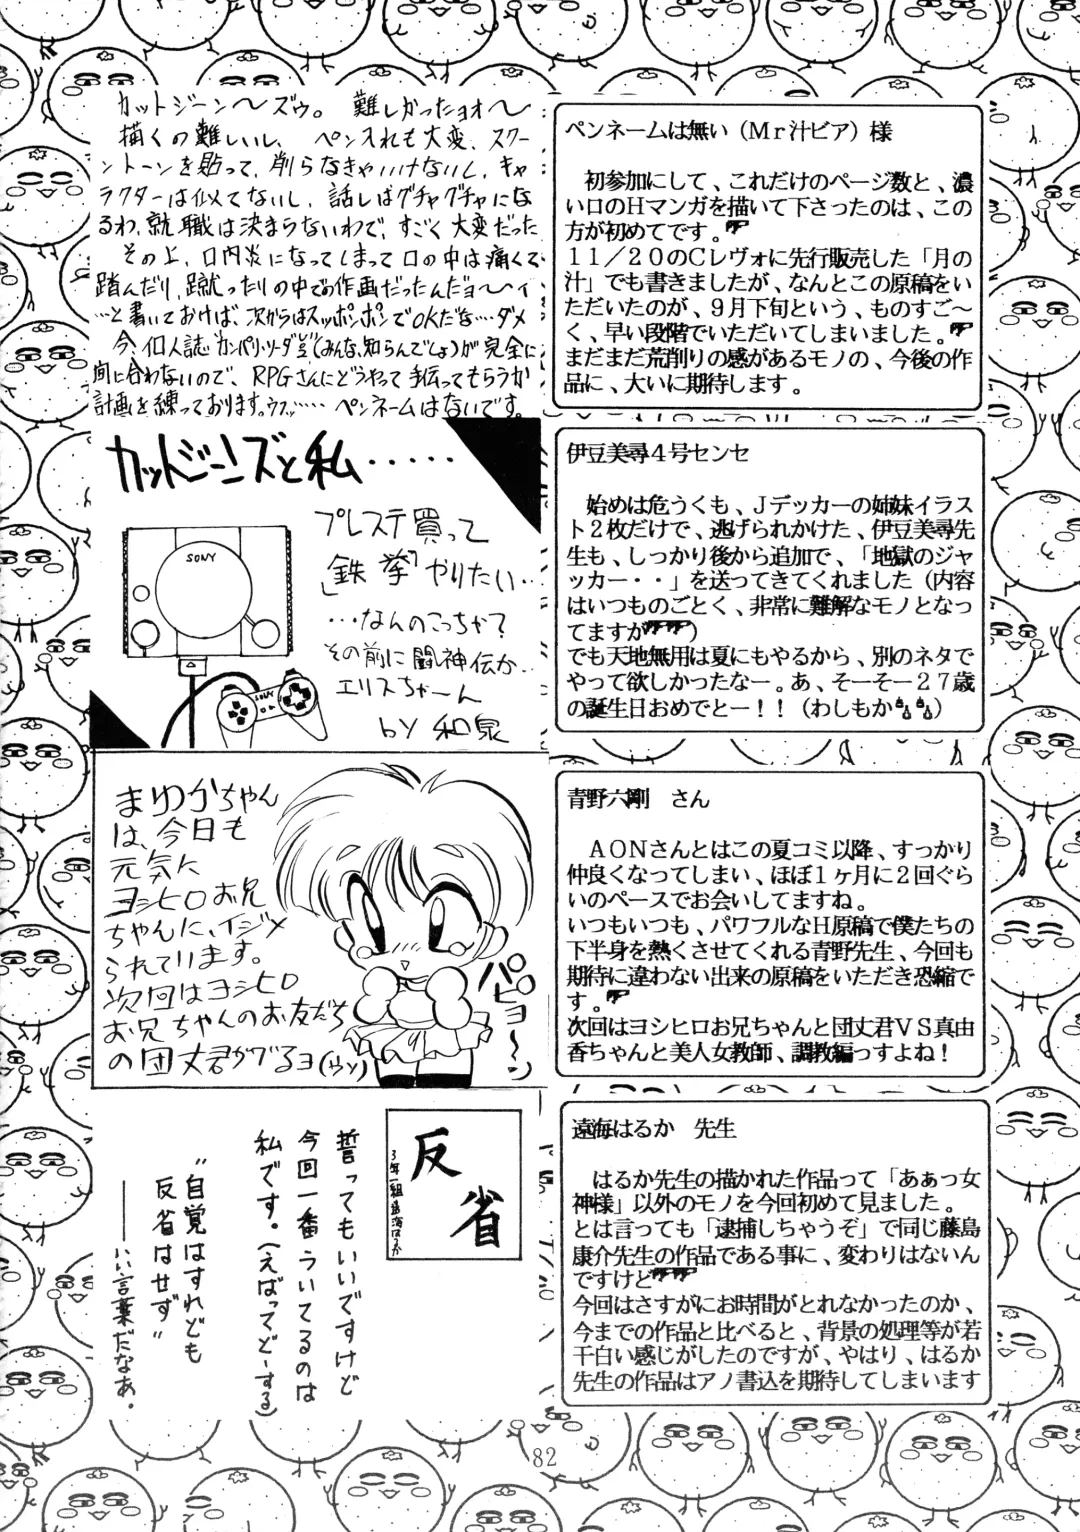 カットジーン〜ズゥ。 難しかったョォ〜
描くの難しいし、ペン入れも大変、スクー
ントーンを貼って、削らなきゃいけないし、キャ
ラクターは似てないし、話しはグチャグチャにな
るわ、就職は決まらないわで、すごく大変だった
その上、口内炎になってしまって口の中は痛くて
踏んだり、蹴ったりの中での作画だったんだョ〜イ
…と書いておけば、次からはスッポンポンでOKだな…ダメ
今、個人誌“カンパリ・ソーダ堂”(みんな、知らんでしょ)が完全に
間に合わないので、RPGさんにどうやって手伝ってもらうか
計画を練っております。ウフッ…… ペンネームはないです。
ペンネームは無い(Mr汁ビア)様
初参加にして、これだけのページ数と、濃
い口のHマンガを描いて下さったのは、この
方が初めてです。
11/20のCレヴォに先行販売した「月の
汁」でも書きましたが、なんとこの原稿をい
ただいたのが、9月下旬という、ものすご〜
く、早い段階でいただいてしまいました。
まだまだ荒削りの感があるモノの、今後の作
品に、大いに期待します。
カットジーンズと私・・・・・
プレステ買って
「鉄拳」やりたい…
…なんのこっちゃ?
その前に闘神伝か…
エリスちゃーん
by 和泉
SONY
SONY
伊豆美尋4号センセ
始めは危うくも、Jデッカーの姉妹イラス
ト2枚だけで、逃げられかけた、伊豆美尋先
生も、しっかり後から追加で、「地獄のジャ
ッカー・・」を送ってきてくれました(内容
はいつものごとく、非常に難解なモノとなっ
てますが)
でも天地無用は夏にもやるから、別のネタで
やって欲しかったなー。あ、そーそー27歳
の誕生日おめでとー!!(わしもか)
まゆかちゃん
は、今日も
元気に
ヨシヒロお兄
ちゃんに、イジメ
られています。
次回はヨシヒロ
お兄ちゃんのお友だち
の団丈君がでるヨ(ウソ)
パピョ〜〜ン
青野六剛 さん
AONさんとはこの夏コミ以降、すっかり
仲良くなってしまい、ほぼ1ヶ月に2回ぐら
いのペースでお会いしてますね。
いつもいつも、パワフルなH原稿で僕たちの
下半身を熱くさせてくれる青野先生、今回も
期待に違わない出来の原稿をいただき恐縮で
す。
次回はヨシヒロお兄ちゃんと団丈君VS真由
香ちゃんと美人女教師、調教編っすよね!
反省
3年一組 遠海はるか
誓ってもいいですけど
今回一番ういてるのは
私です。(えばってどーする)
“自覚はすれども
反省はせず”
――いい言葉だなあ。
遠海はるか 先生
はるか先生の描かれた作品って「あぁっ女
神様」以外のモノを今回初めて見ました。
とは言っても「逮捕しちゃうぞ」で同じ藤島
康介先生の作品である事に、変わりはないん
ですけど
今回はさすがにお時間がとれなかったのか、
今までの作品と比べると、背景の処理等が若
干白い感じがしたのですが、やはり、はるか
先生の作品はアノ書込を期待してしまいます
82